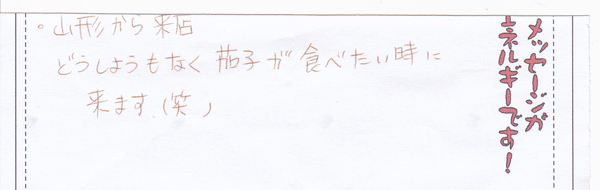 メッセージが
エネルギーです!
。山形から来店
どうしようもなく茄子が食べたい時に
来ます(笑)